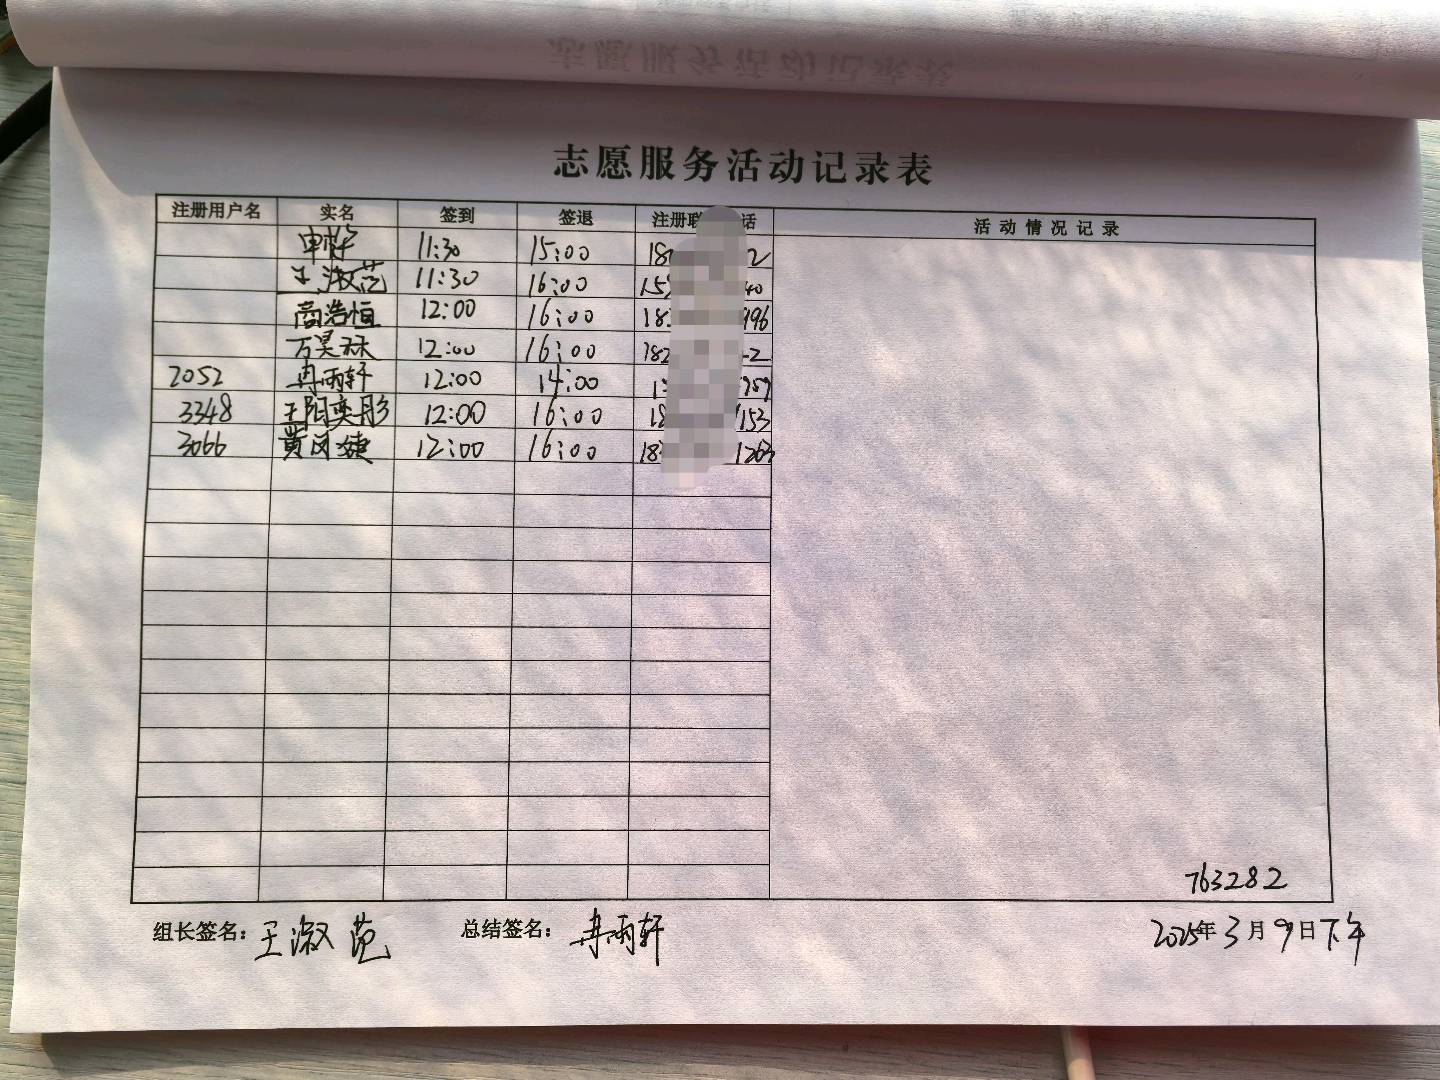 志愿服务活动记录表
注册用户名 实名 签到 签退 注册联 话 活动情况记录
申 11:30 15:00 18 2
王淑范 11:30 16:00 15 40
商浩恒 12:00 16:00 18 996
万昊 12:00 16:00 182 2
2052 冉雨轩 12:00 14:00 1 959
3348 王阳奕彤 12:00 16:00 18 153
3066 黄凤婕 12:00 16:00 18 1263
763282
组长签名: 王淑范 总结签名: 冉雨轩 2025年3月9日下午